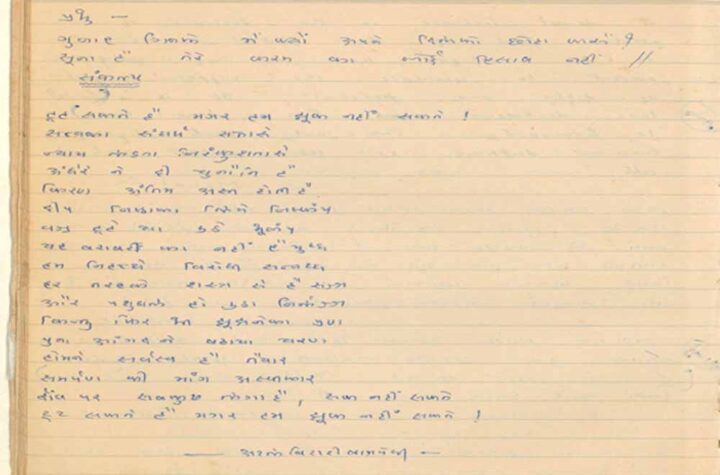 પ્રભુ —
ગુનાહ ગિનકે મેં ક્યોં અપને દિલકો છોટા કરું ?
સુના હૈ તેરે કરમ કા કોઈ હિસાબ નહીં //
સંકલ્પ
ટૂટ સકતે હૈં મગર હમ ઝુક નહીં સકતે !
સત્યકા સંઘર્ષ સત્તાસે
ન્યાય લડતા નિરંકુશતાસે
અંધેરે ને દી ચુનૌતિ હૈ
કિરણ અંતિમ અસ્ત હોતી હૈ
દીપ નિષ્ઠાકા લિયે નિષ્કંપ
વજ્ર ટૂટે યા ઉઠે ભૂકંપ
યહ બરાબરી કા નહીં હૈ યુધ્ધ
હમ નિહથ્થે વિરોધી સન્નધ્ધ
હર તરહકે શસ્ત્ર સે હૈ સજ્જ
ઔર પશુબલ હો ઉઠા નિર્લજ્જ
કિન્તુ ફિર ભી ઝુઝનેકા પ્રણ
પુનઃ અંગદ ને બઢાયા ચરણ
હોમને સર્વસ્વ હૈ તૈયાર
સમર્પણ કી માંગ અસ્વીકાર
દાંવ પર સબકુછ લગા હૈ, રુક નહીં સકતે
ટૂટ સકતે હૈં મગર હમ ઝુક નહીં સકતે !
— અટલ બિહારી બાજપેયી —